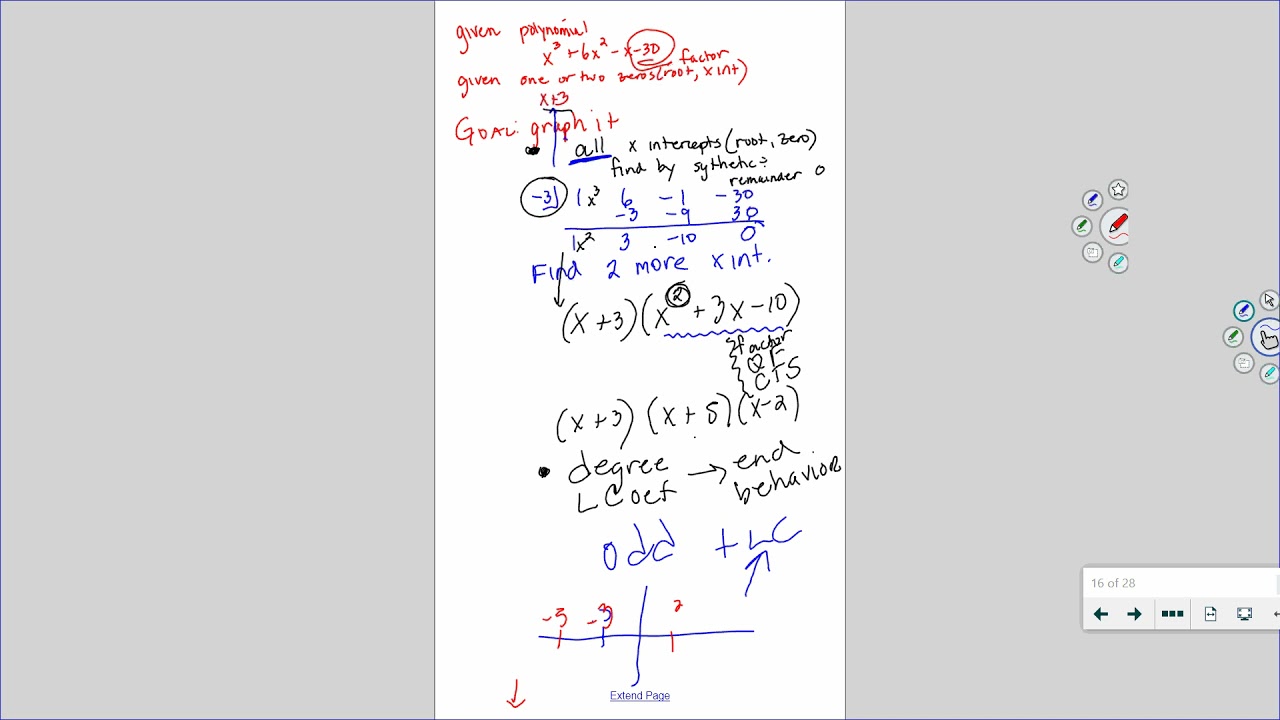 given polynomial
x³ + 6x² - x - 30
factor
given one or two zeros (root, x int)
x+3
GOAL: graph it
• all x intercepts (root, zero)
find by sythetic ÷
remainder 0
-3⌋ 1x³ 6 -1 -30
-3 -9 30
1x² 3 -10 0
Find 2 more x int.
(x+3)(x² + 3x - 10)
factor
QF
CTS
(x+3)(x+5)(x-2)
• degree → end
LCoef behavior
odd + LC
-5 -3 2
Extend Page
16 of 28